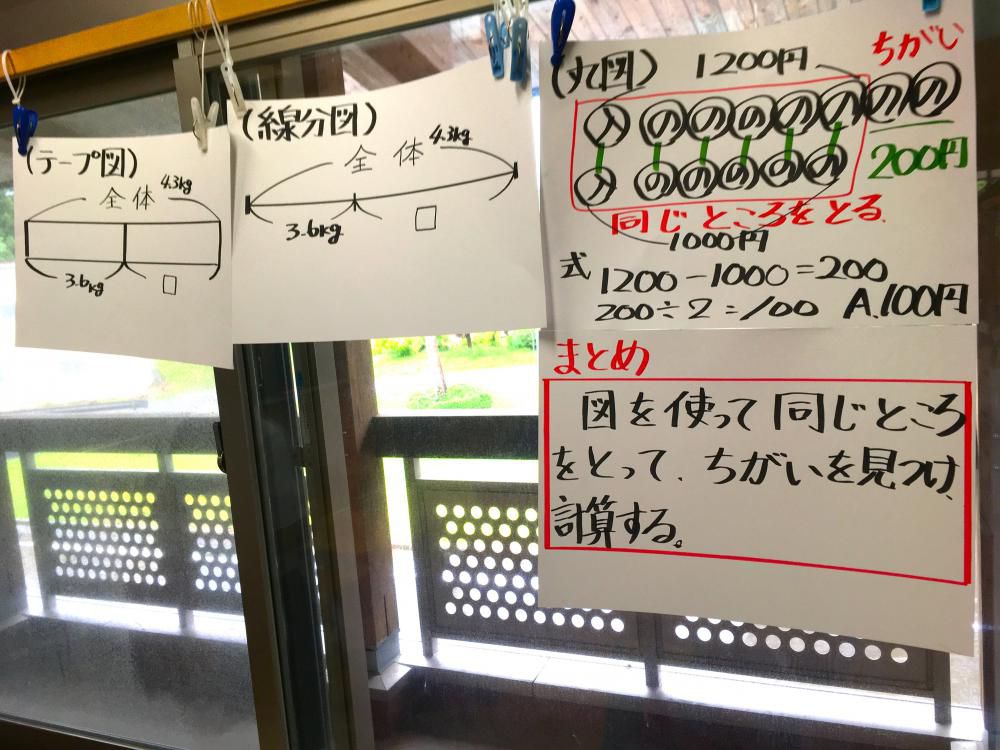 (テープ図)
全体 4.3kg
3.6kg □
(線分図)
全体 4.3kg
3.6kg □
(丸図) 1200円 ちがい
入 の の の の の の の
200円
入 の の の の の
同じところをとる
1000円
式 1200-1000=200
200÷2=100 A.100円
まとめ
図を使って同じところ
をとって、ちがいを見つけ、
計算する。